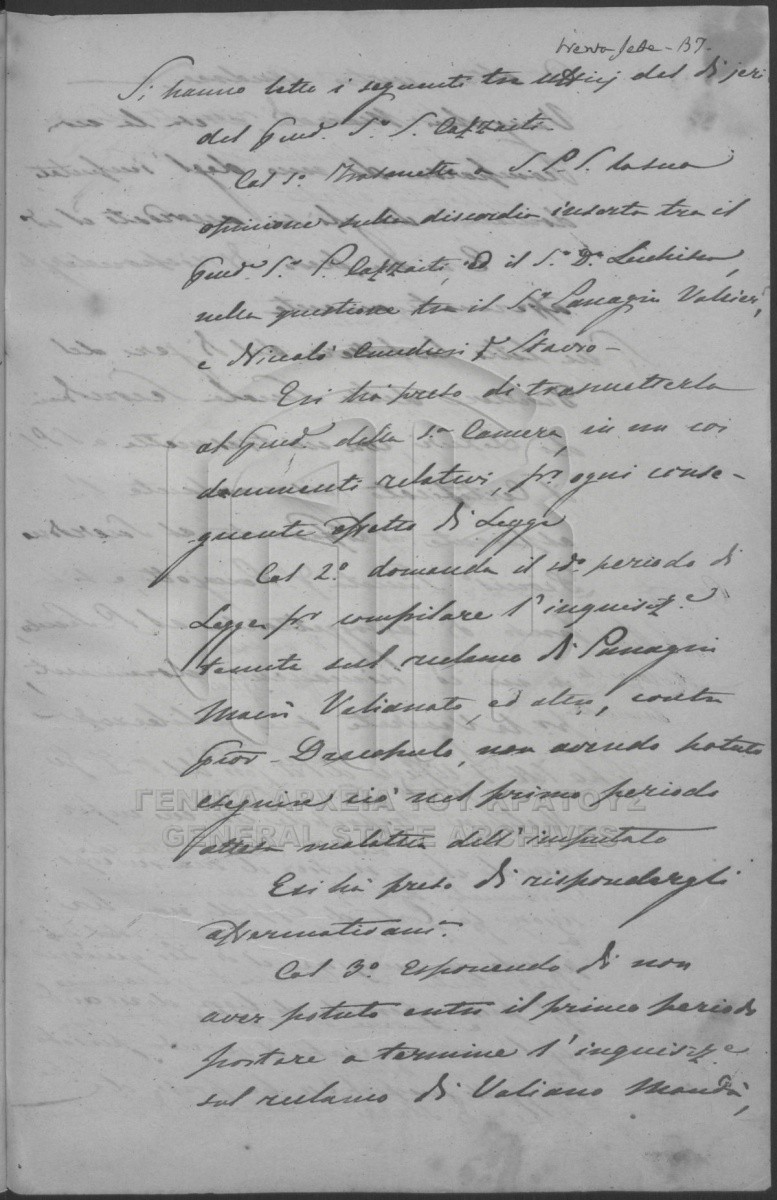 trenta sette - 37.
Si hanno letto i seguenti tre uffizj del dì jeri
del Giud. S.r S. Cazzaiti.
Col 1.o Trasmette a S. P. S. la sua
opinione sulla discordia insorta tra il
Giud. S.r P. Cazzaiti, ed il S.r D.r
nella questione tra il S.r Panagin Valieri,
e Niccolò Conduri q.m Stavro -
Esi hà preso di trasmetterla
al Giud. della 1.a Camera, in un coi
documenti relativi, p.r ogni conse-
guente effetto di Legge
Col 2.o domanda il 2.do periodo di
Legge p.r compilare l'inquisiz.e
tenuta sul reclamo di Panagin
Valianato, ed altri, contro
Giov. Dracopulo, non avendo potuto
eseguire ciò nel primo periodo
attesa malattia dell'imputato
Esi hà preso di rispondergli
affermativam.e
Col 3.o Esponendo di non
aver potuto entro il primo periodo
portare a termine l'inquisiz.e
sul reclamo di Valiano
ΓΕΝΙΚΑ ΑΡΧΕΙΑ ΤΟΥ ΚΡΑΤΟΥΣ
GENERAL STATE ARCHIVES